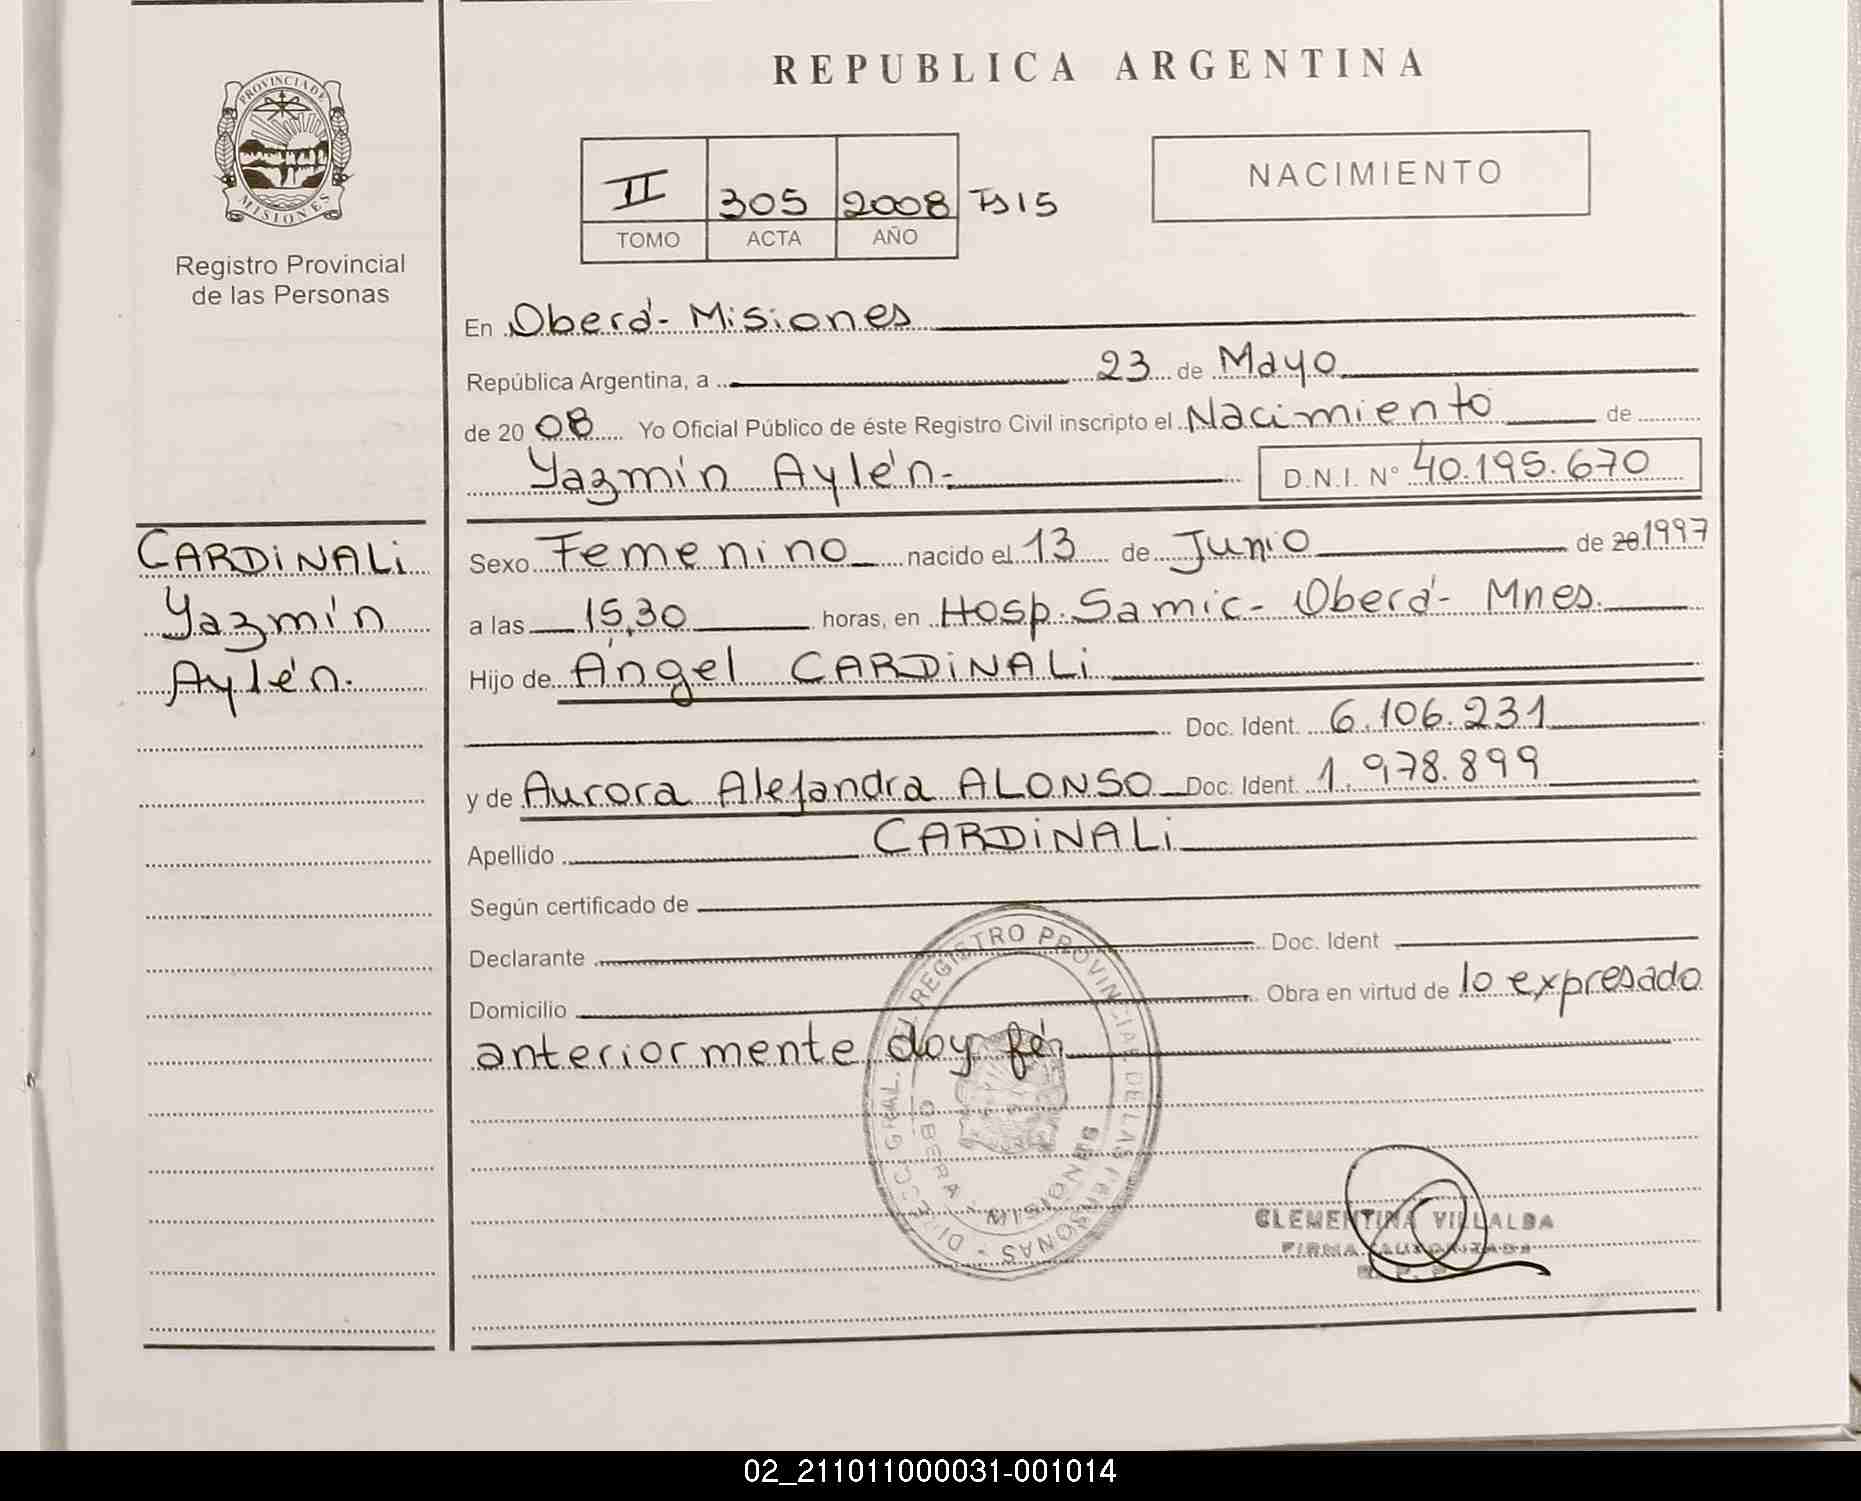 PROVINCIA DE
MISIONES
Registro Provincial
de las Personas
CARDiNALi
Yazmín
Aylén.
REPUBLICA ARGENTINA
II 305 2008
TOMO ACTA AÑO
NACIMIENTO
En Oberá- Misiones
República Argentina, a 23 de Mayo
de 20 08 Yo Oficial Público de éste Registro Civil inscripto el Nacimiento de
Yazmín Aylén- D.N.I. N° 40.195.670
Sexo Femenino nacido el 13 de Junio de 20 1997
a las 15,30 horas, en Hosp. Samic- Oberá- Mnes.
Hijo de Ángel CARDiNALi
Doc. Ident. 6.106.231
y de Aurora Alejandra ALONSO Doc. Ident. 1.978.899
Apellido CARDiNALi
Según certificado de
Declarante Doc. Ident
Domicilio Obra en virtud de lo expresado
anteriormente, doy fé,
REGISTRO PROVINCIAL DE LAS PERSONAS -
OBERA MISIONES
CLEMENTINA VILLALBA
FIRMA AUTORIZADA
02_211011000031-001014